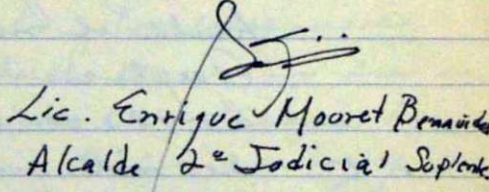 Lic. Enrique Mooret Bermúdez
Alcalde 2º Judicial Suplente